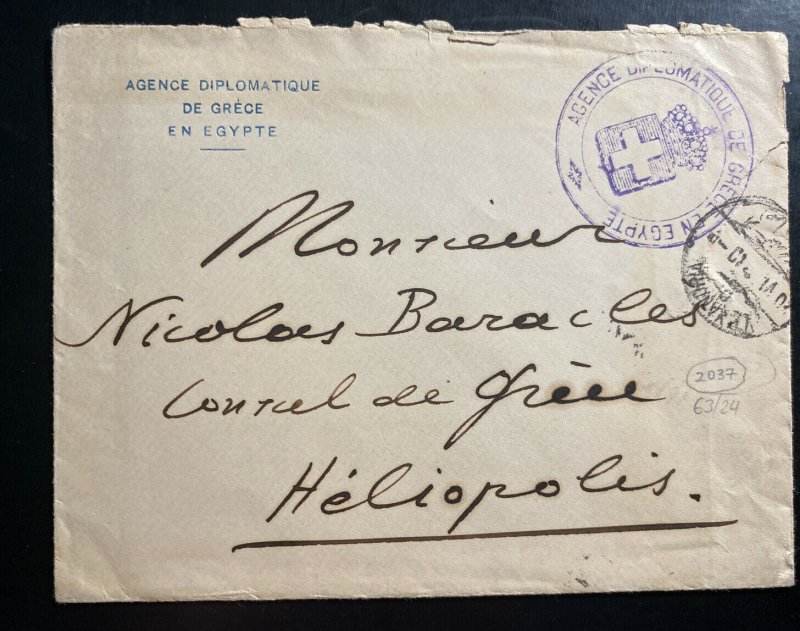 AGENCE DIPLOMATIQUE
DE GRÈCE
EN EGYPTE
AGENCE DIPLOMATIQUE DE GRÈCE EN EGYPTE
Monsieur
Nicolas Baracles
Consul de Grèce
Héliopolis.
2037
63/24